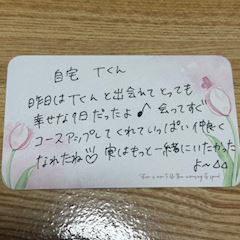 自宅 Tくん
昨日はTくんと出会れてとっても
幸せな1日だったよ♪ 会ってすぐ
コースアップしてくれていっぱい仲良く
なれたね 実はもっと一緒にいたかった
よ〜△△